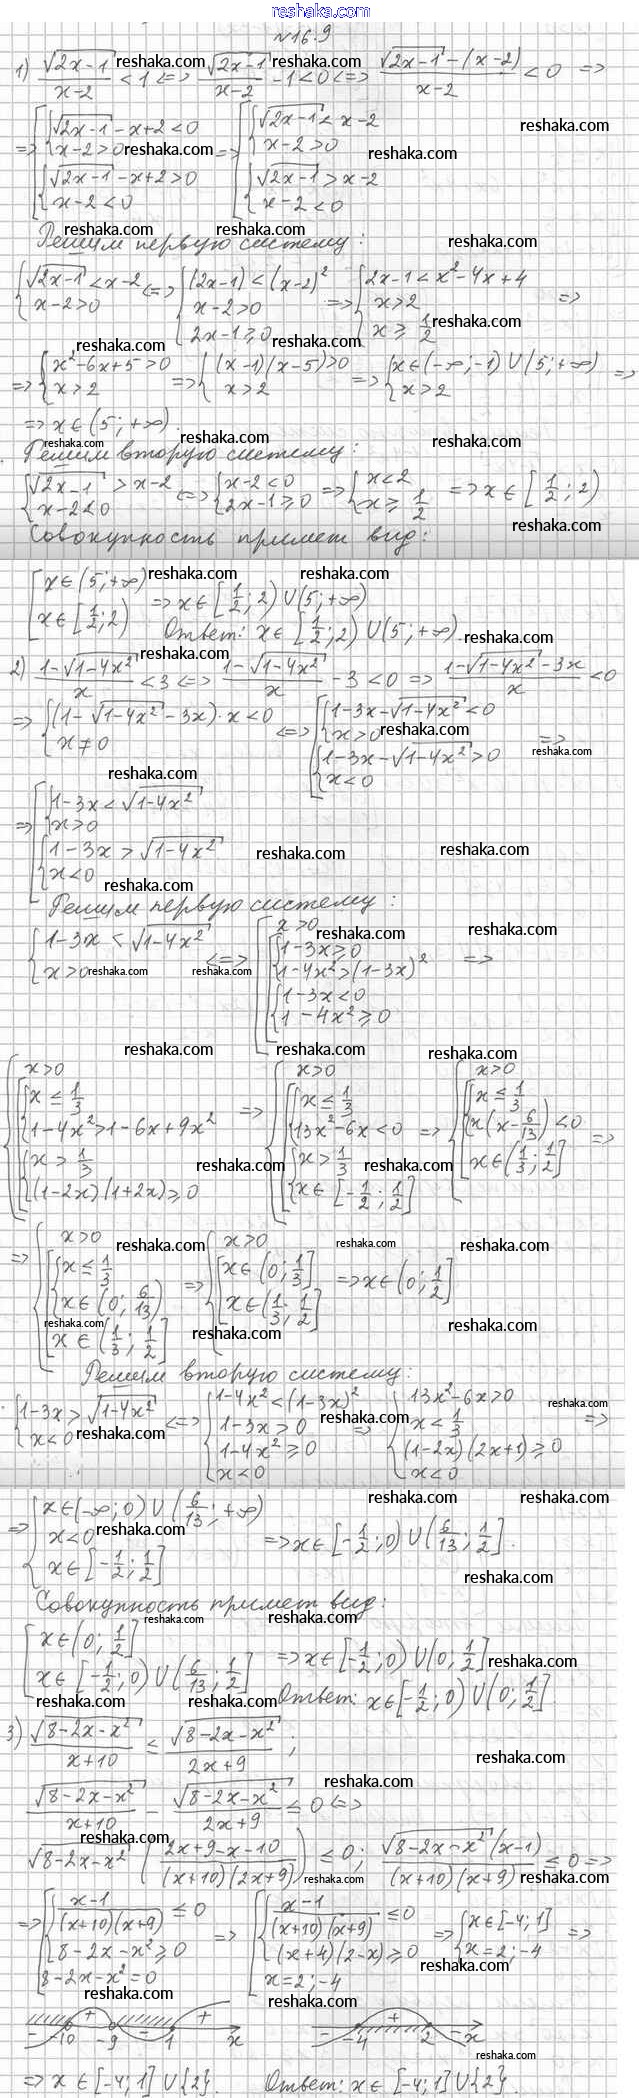 www.reshaka.com
№16.9
1) √(2x-1)/(x-2) < 1 <=> √(2x-1)/(x-2) - 1 < 0 <=> (√(2x-1) - (x-2))/(x-2) < 0 =>
=> [ { √(2x-1) - x+2 < 0 ; x-2 > 0 ; { √(2x-1) - x+2 > 0 ; x-2 < 0 => [ { √(2x-1) < x-2 ; x-2 > 0 ; { √(2x-1) > x-2 ; x-2 < 0
Решим первую систему:
{ √(2x-1) < x-2 ; x-2 > 0 <=> { (2x-1) < (x-2)² ; x-2 > 0 ; 2x-1 ≥ 0 => { 2x-1 < x²-4x+4 ; x > 2 ; x ≥ 1/2 =>
=> { x²-6x+5 > 0 ; x > 2 => { (x-1)(x-5) > 0 ; x > 2 => { x ∈ (-∞; -1) ∪ (5; +∞) ; x > 2 =>
=> x ∈ (5; +∞).
Решим вторую систему:
{ √(2x-1) > x-2 ; x-2 < 0 <=> { x-2 < 0 ; 2x-1 ≥ 0 => { x < 2 ; x ≥ 1/2 => x ∈ [1/2; 2)
Совокупность примет вид:
[ x ∈ (5; +∞) ; x ∈ [1/2; 2) => x ∈ [1/2; 2) ∪ (5; +∞)
Ответ: x ∈ [1/2; 2) ∪ (5; +∞).
2) (1-√(1-4x²))/x < 3 <=> (1-√(1-4x²))/x - 3 < 0 => (1-√(1-4x²) - 3x)/x < 0
=> { (1-√(1-4x²) - 3x)·x < 0 ; x ≠ 0 <=> [ { 1-3x-√(1-4x²) < 0 ; x > 0 ; { 1-3x-√(1-4x²) > 0 ; x < 0 =>
=> [ { 1-3x < √(1-4x²) ; x > 0 ; { 1-3x > √(1-4x²) ; x < 0
Решим первую систему:
{ 1-3x < √(1-4x²) ; x > 0 <=> { x > 0 ; [ { 1-3x ≥ 0 ; 1-4x² > (1-3x)² ; { 1-3x < 0 ; 1-4x² ≥ 0 =>
{ x > 0 ; [ { x ≤ 1/3 ; 1-4x² > 1-6x+9x² ; { x > 1/3 ; (1-2x)(1+2x) ≥ 0 => { x > 0 ; [ { x ≤ 1/3 ; 13x²-6x < 0 ; { x > 1/3 ; x ∈ [-1/2; 1/2] => { x > 0 ; [ { x ≤ 1/3 ; x(x-6/13) < 0 ; x ∈ (1/3; 1/2] =>
=> { x > 0 ; [ { x ≤ 1/3 ; x ∈ (0; 6/13) ; x ∈ (1/3; 1/2] => { x > 0 ; [ x ∈ (0; 1/3] ; x ∈ (1/3; 1/2] => x ∈ (0; 1/2]
Решим вторую систему:
{ 1-3x > √(1-4x²) ; x < 0 <=> { 1-4x² < (1-3x)² ; 1-3x > 0 ; 1-4x² ≥ 0 ; x < 0 => { 13x²-6x > 0 ; x < 1/3 ; (1-2x)(2x+1) ≥ 0 ; x < 0 =>
=> { x ∈ (-∞; 0) ∪ (6/13; +∞) ; x < 0 ; x ∈ [-1/2; 1/2] => x ∈ [-1/2; 0) ∪ (6/13; 1/2].
Совокупность примет вид:
[ x ∈ (0; 1/2] ; x ∈ [-1/2; 0) ∪ (6/13; 1/2] => x ∈ [-1/2; 0) ∪ (0; 1/2]
Ответ: x ∈ [-1/2; 0) ∪ (0; 1/2].
3) √(8-2x-x²)/(x+10) ≤ √(8-2x-x²)/(2x+9);
√(8-2x-x²)/(x+10) - √(8-2x-x²)/(2x+9) ≤ 0 <=>
√(8-2x-x²) ((2x+9-x-10)/((x+10)(2x+9))) ≤ 0; √(8-2x-x²)(x-1)/((x+10)(x+9)) ≤ 0 =>
=> [ { (x-1)/((x+10)(x+9)) ≤ 0 ; 8-2x-x² ≥ 0 ; 8-2x-x² = 0 => [ { (x-1)/((x+10)(x+9)) ≤ 0 ; (x+4)(2-x) ≥ 0 ; x = 2; -4 => { x ∈ [-4; 1] ; x = 2; -4 =>
- -10 + -9 - 1 + x
- -4 + 2 - x
=> x ∈ [-4; 1] ∪ {2}. Ответ: x ∈ [-4; 1] ∪ {2}.
reshaka.com